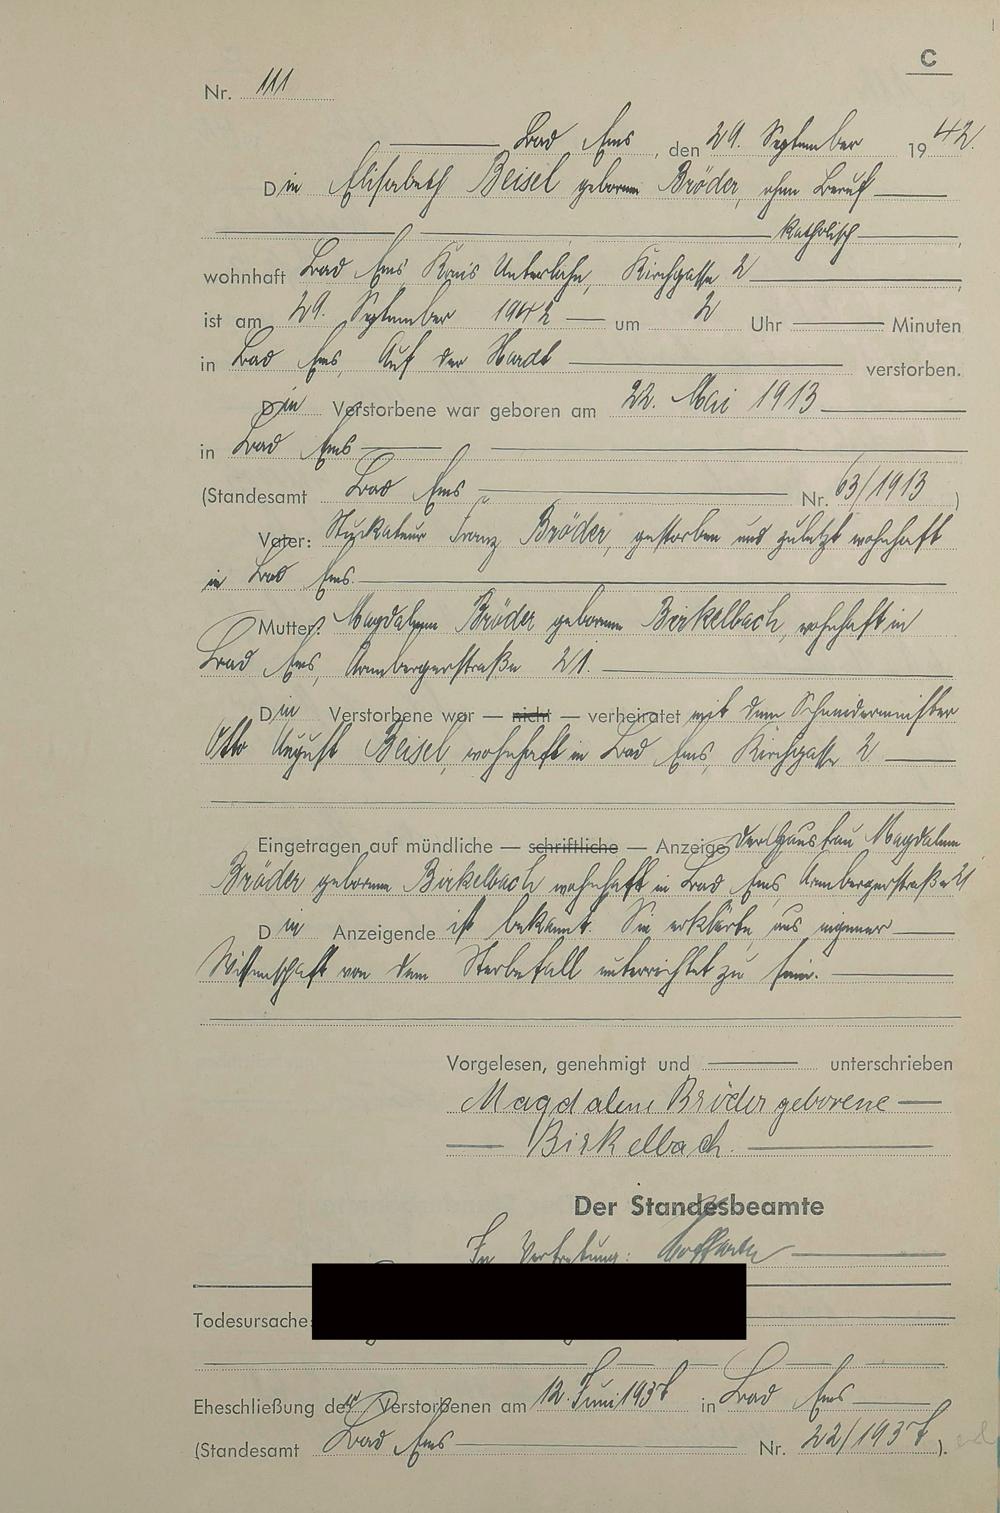 C
Nr. 111
Bad Ems, den 29. September 1942.
Die Elisabeth Beisel geborene Bröder, ohne Beruf
katholisch,
wohnhaft Bad Ems Kreis Unterlahn, Kirchgasse 2,
ist am 29. September 1942 um 2 Uhr Minuten
in Bad Ems, Auf der Hardt verstorben.
Die Verstorbene war geboren am 22. Mai 1913
in Bad Ems
(Standesamt Bad Ems Nr. 63/1913)
Vater: Stuckateur Franz Bröder, gestorben und zuletzt wohnhaft
in Bad Ems.
Mutter: Magdalene Bröder geborene Birkelbach, wohnhaft in
Bad Ems, Arenbergerstraße 21.
Die Verstorbene war — nicht — verheiratet mit dem Schneidermeister
Otto August Beisel, wohnhaft in Bad Ems, Kirchgasse 2
Eingetragen auf mündliche — schriftliche — Anzeige der Hausfrau Magdalene
Bröder geborene Birkelbach wohnhaft in Bad Ems, Arenbergerstraße 21
Die Anzeigende ist bekannt. Sie erklärte, aus eigener
Wissenschaft von dem Sterbefall unterrichtet zu sein.
Vorgelesen, genehmigt und unterschrieben
Magdalene Bröder geborene
Birkelbach.
Der Standesbeamte
In Vertretung:
Todesursache:
Eheschließung der Verstorbenen am 12. Juni 193 in Bad Ems
(Standesamt Bad Ems Nr. 22/193).